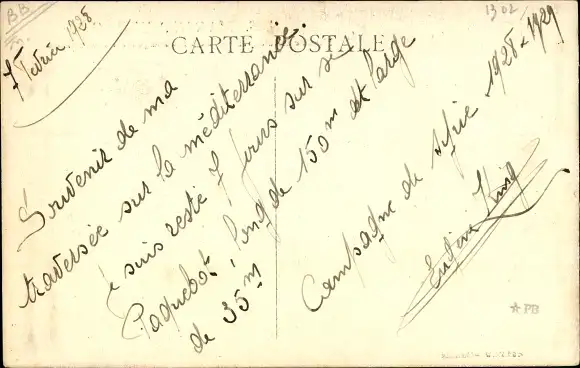 BB
1302
7 Février 1928
CARTE POSTALE
Souvenir de ma
traversée sur la méditerranée.
Je suis resté 7 jours sur se
Paquebot, long de 150m et large
de 35m
Campagne de 1928 x 1929
Eugène
★ PB